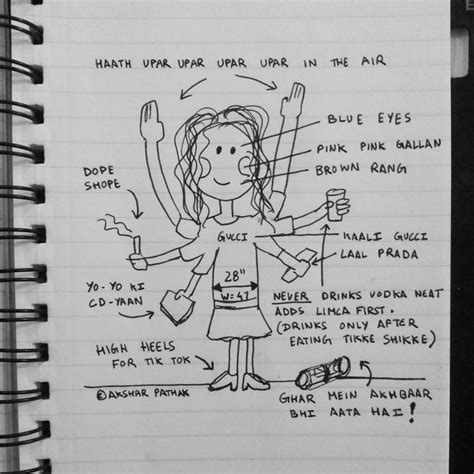 HAATH UPAR UPAR UPAR UPAR IN THE AIR
BLUE EYES
PINK PINK GALLAN
BROWN RANG
DOPE
SHOPE
GUCCI
KAALI GUCCI
LAAL PRADA
28"
W=47
YO-YO KI
CD-YAAN
NEVER DRINKS VODKA NEAT
ADDS LIMCA FIRST.
(DRINKS ONLY AFTER
EATING TIKKE SHIKKE)
HIGH HEELS
FOR TIK TOK
©AKSHAR PATHAK
GHAR MEIN AKHBAAR
BHI AATA HAI!